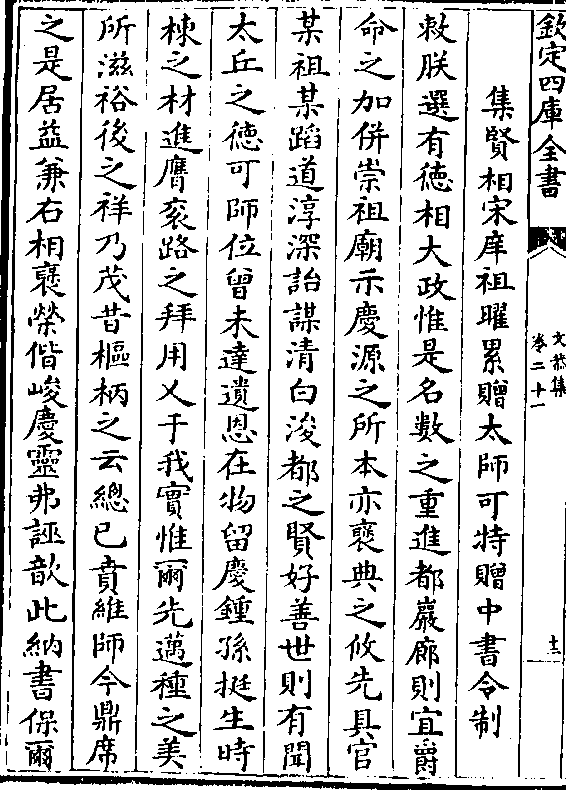 欽定四庫全書
文恭集
卷二十一
十三
集賢相宋庠祖曜累贈太師可特贈中書令制
敕朕選有德相大政惟是名數之重進都巖廊則宜爵
命之加併崇祖廟示慶源之所本亦褒典之攸先具官
某祖某蹈道淳深詒謀清白浚都之賢好善世則有聞
太丘之德可師位曾未達遺恩在物留慶鍾孫挺生時
棟之材進膺衮路之拜用乂于我實惟爾先邁種之美
所滋裕後之祥乃茂昔樞柄之云總已賁維師今鼎席
之是居益兼右相褒榮偕峻慶靈弗誣歆此納書保爾